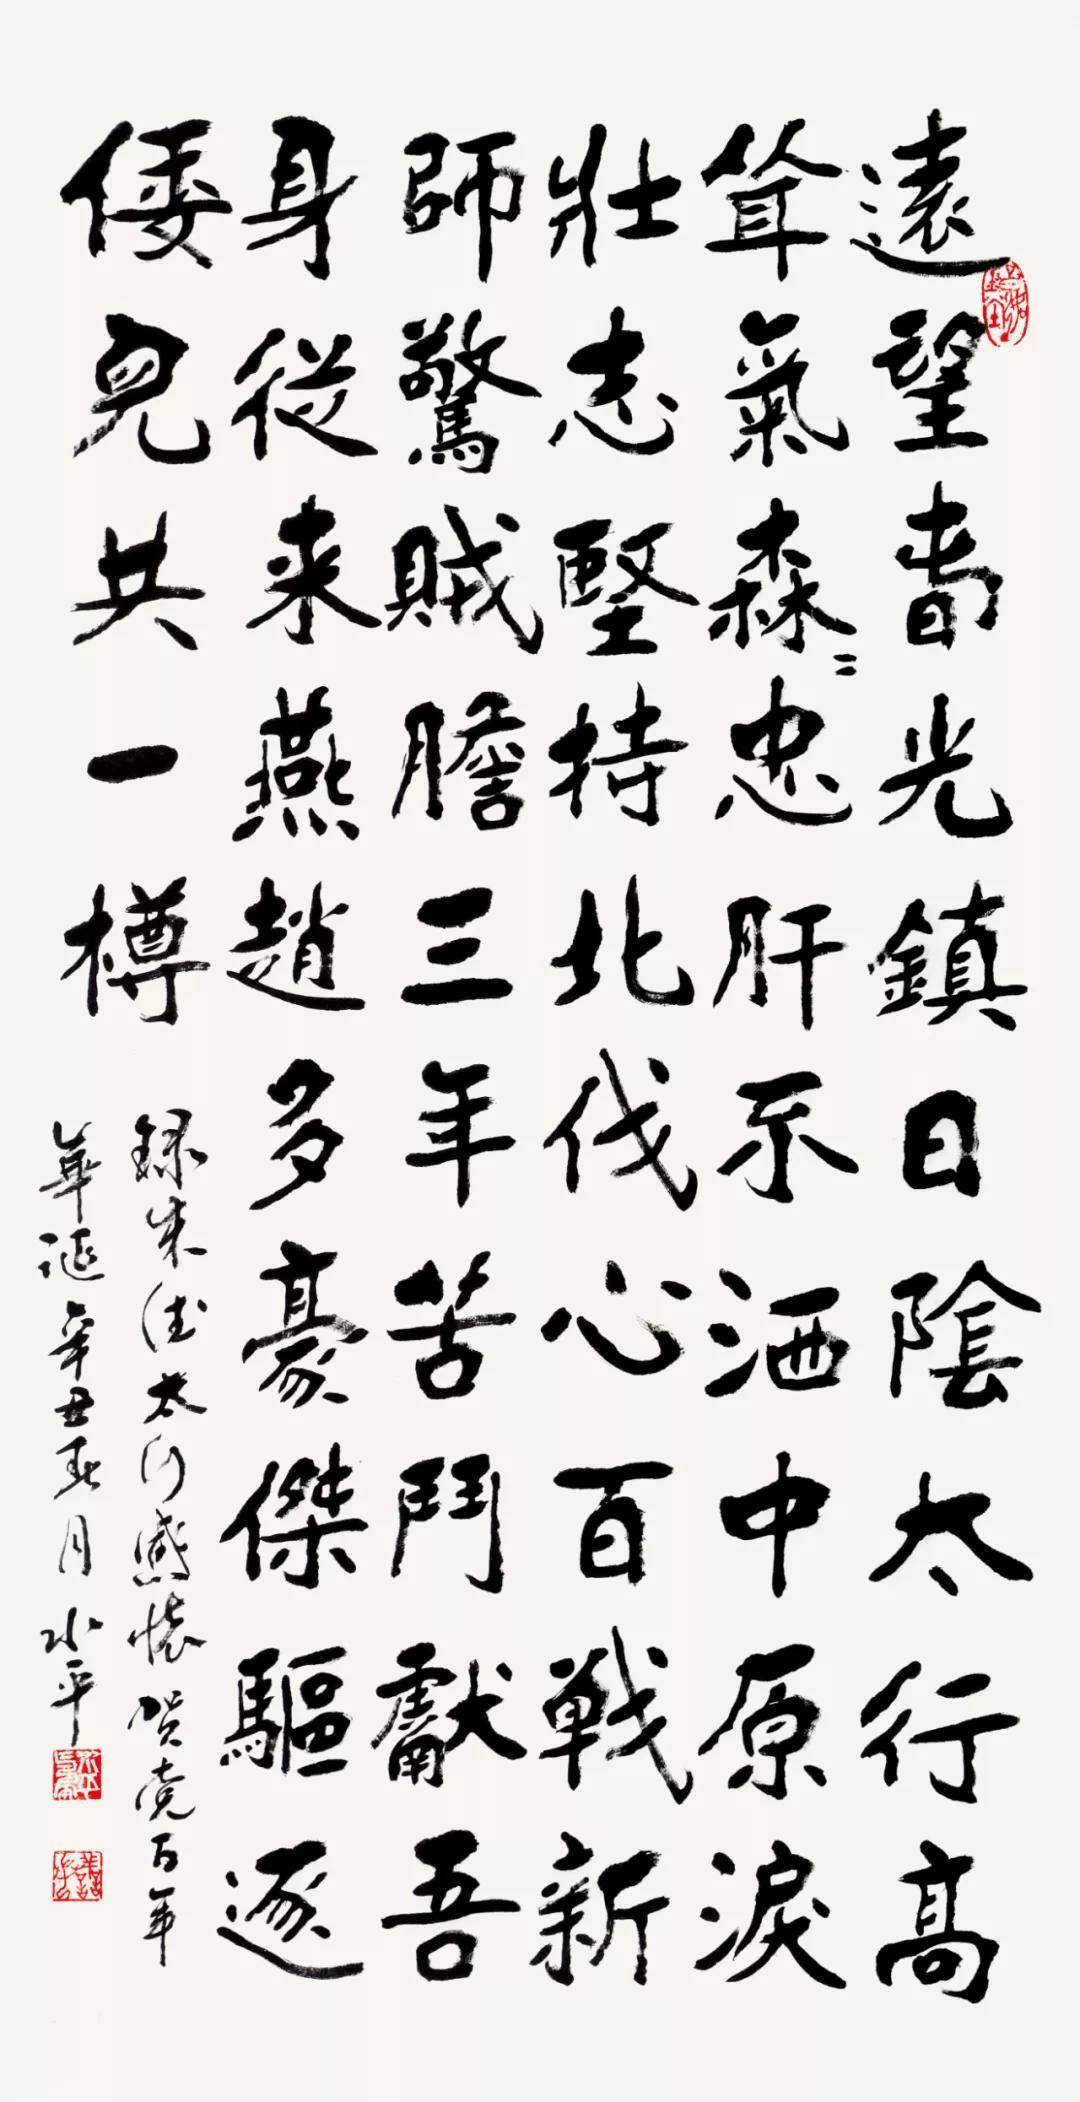 遠望春光鎮日陰太行高
聳氣森々忠肝不洒中原淚
壯志堅持北伐心百戰新
師驚賊膽三年苦鬥獻吾
身從来燕趙多豪傑驅逐
倭兒共一樽
錄朱德太行感懷賀党百年
華诞辛丑春月水平